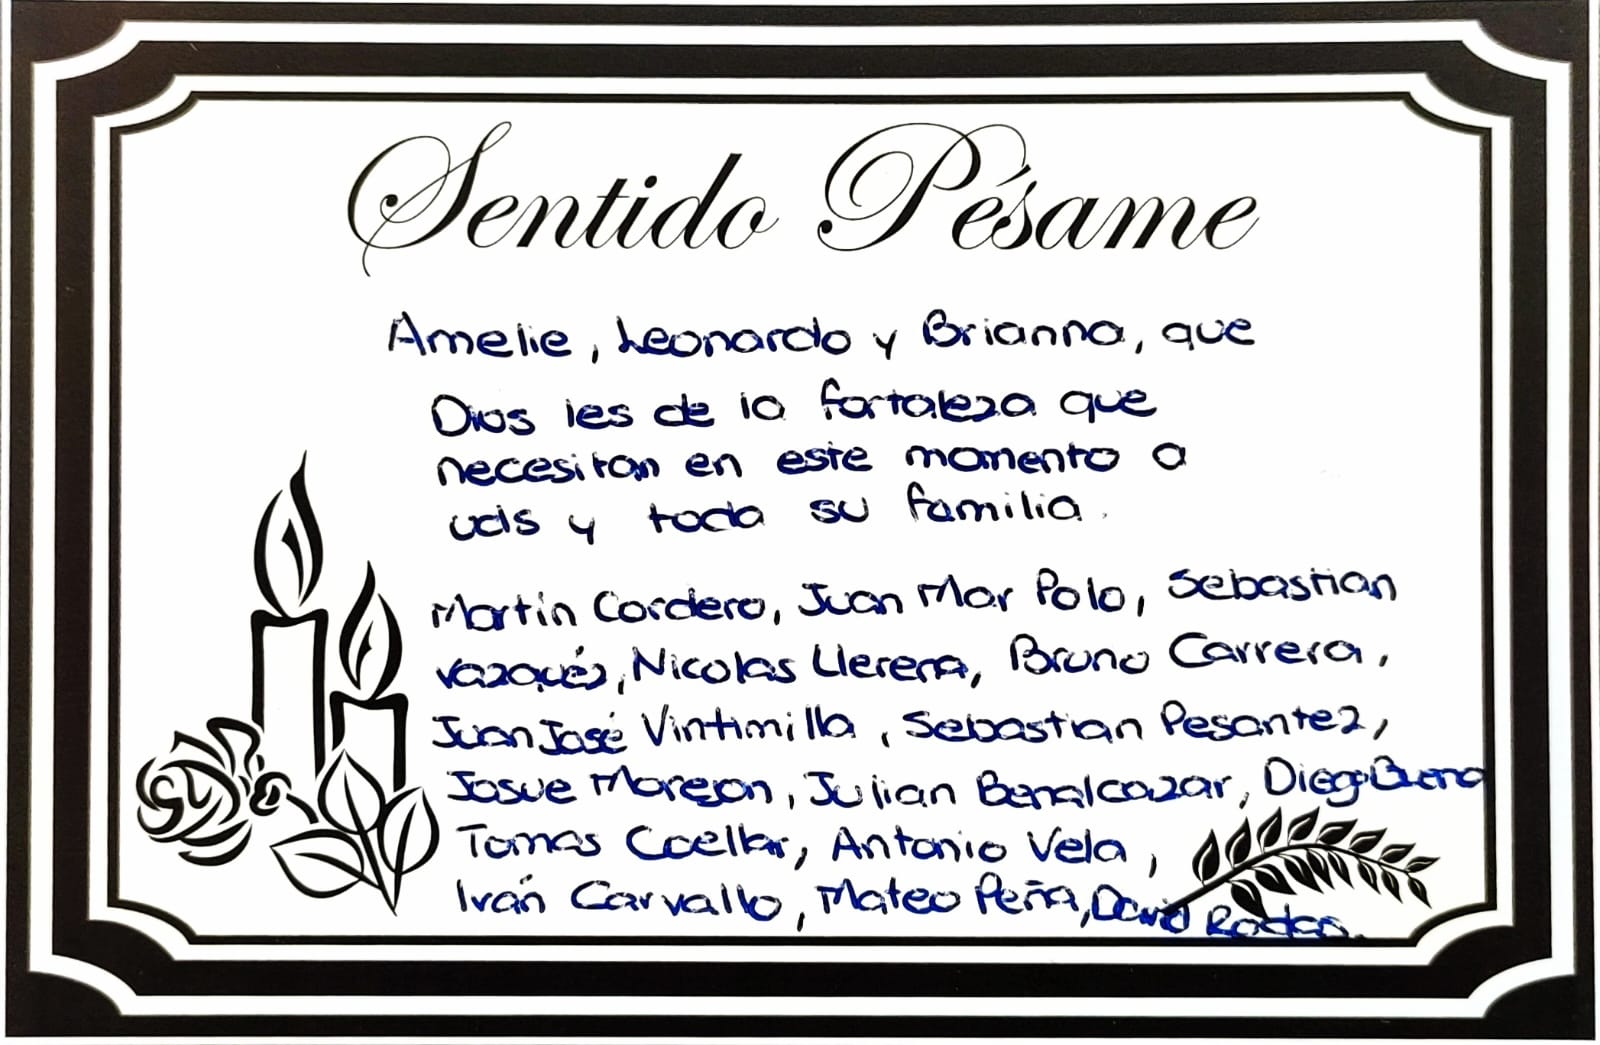 Sentido Pésame
Amelie, Leonardo y Brianna, que
Dios les de la fortaleza que
necesitan en este momento a
uds y toda su familia.
Martin Cordero, Juan Mar Polo, Sebastian
Vazqués, Nicolas Llerena, Bruno Carrera,
Juan José Vintimilla, Sebastian Pesantez,
Josue Morejon, Julian Benalcazar, Diego Bueno
Tomas Coellar, Antonio Vela,
Iván Carvallo, Mateo Peña, David Rodas.